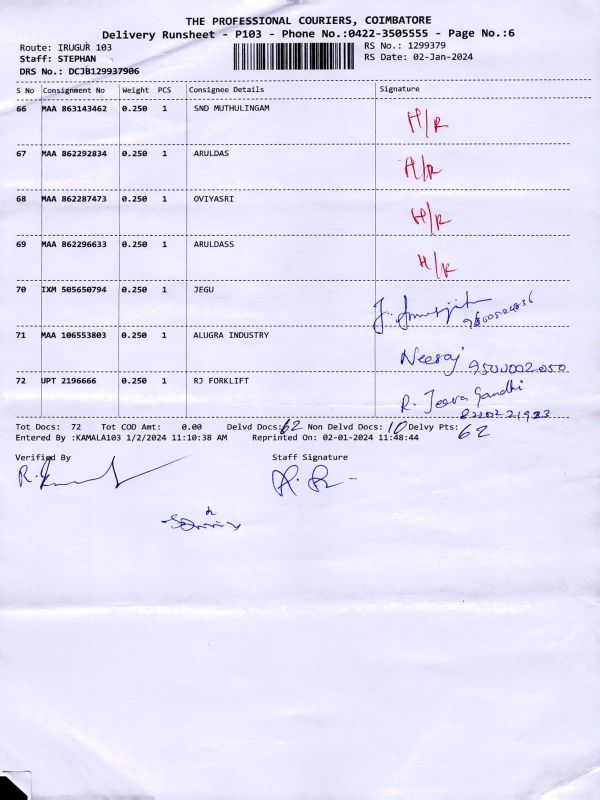 THE PROFESSIONAL COURIERS, COIMBATORE
Delivery Runsheet - P103 - Phone No.:0422-3505555 - Page No.:6
Route: IRUGUR 103 RS No.: 1299379
Staff: STEPHAN RS Date: 02-Jan-2024
DRS No.: DCJB129937906
S No Consignment No Weight PCS Consignee Details Signature
66 MAA 863143462 0.250 1 SND MUTHULINGAM H/R
67 MAA 862292834 0.250 1 ARULDAS H/R
68 MAA 862287473 0.250 1 OVIYASRI H/R
69 MAA 862296633 0.250 1 ARULDASS H/R
70 IXM 505650794 0.250 1 JEGU
71 MAA 106553803 0.250 1 ALUGRA INDUSTRY Neeraj 9500002050
72 UPT 2196666 0.250 1 RJ FORKLIFT R. Jeeva Gandhi
Tot Docs: 72 Tot COD Amt: 0.00 Delvd Docs: 62 Non Delvd Docs: 10 Delvy Pts: 62
Entered By :KAMALA103 1/2/2024 11:10:38 AM Reprinted On: 02-01-2024 11:48:44
Verified By Staff Signature